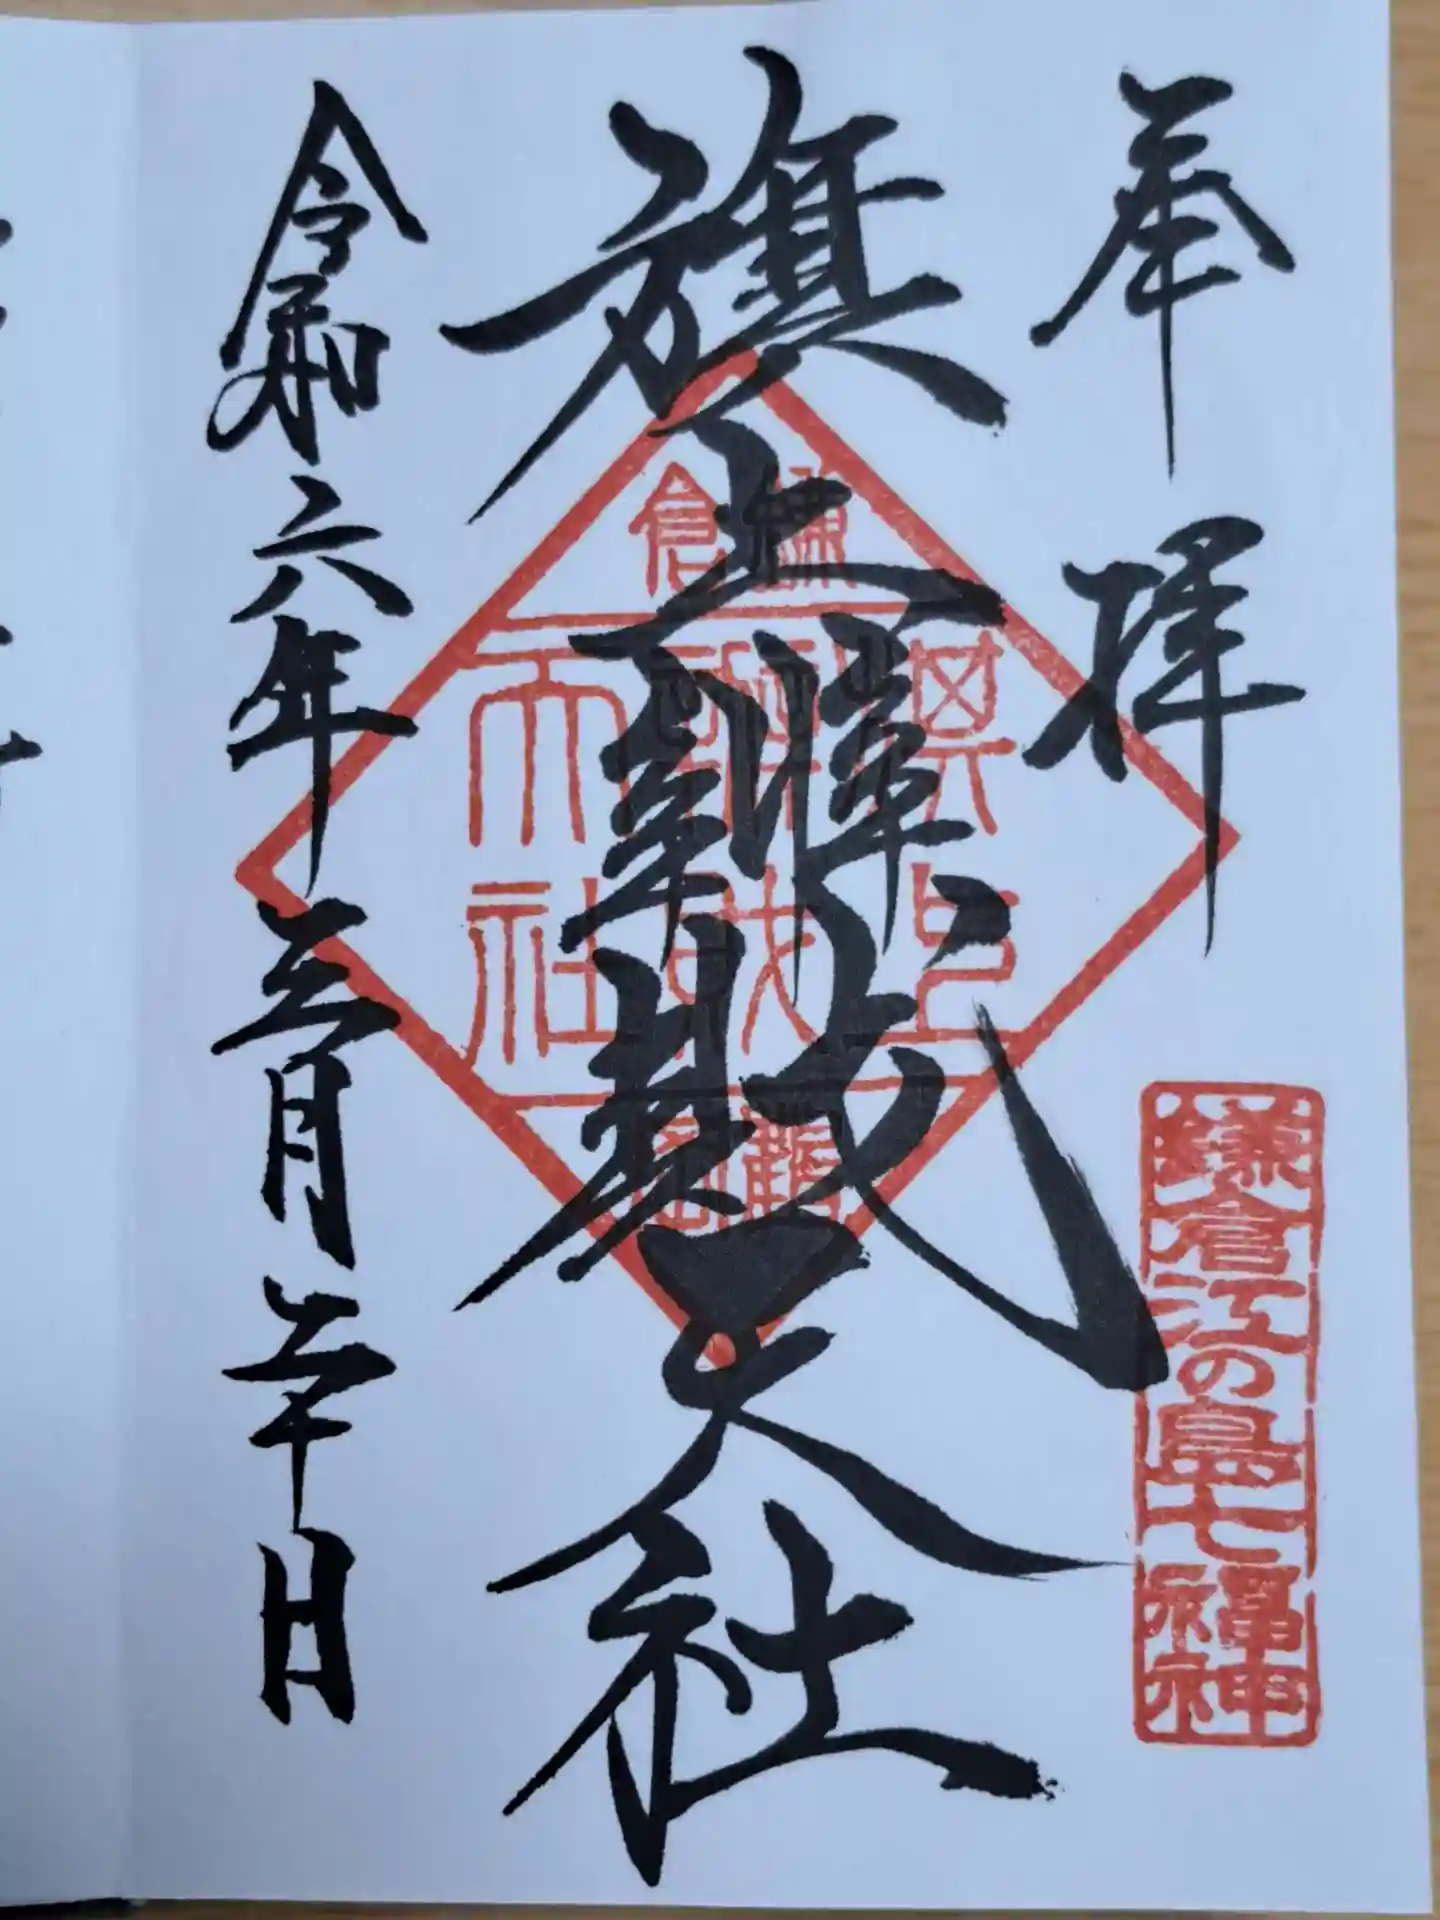 奉拝
鎌倉江の島七福神
旗上辨財天社
鎌倉
旗上
辨財
天社
鶴岡
令和六年三月二十日